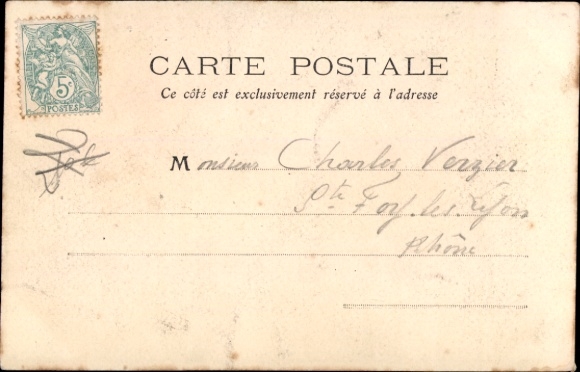 5c
POSTES
CARTE POSTALE
Ce côté est exclusivement réservé à l'adresse
Monsieur Charles Verzier
Ste Foy-les-Lyon
Rhône